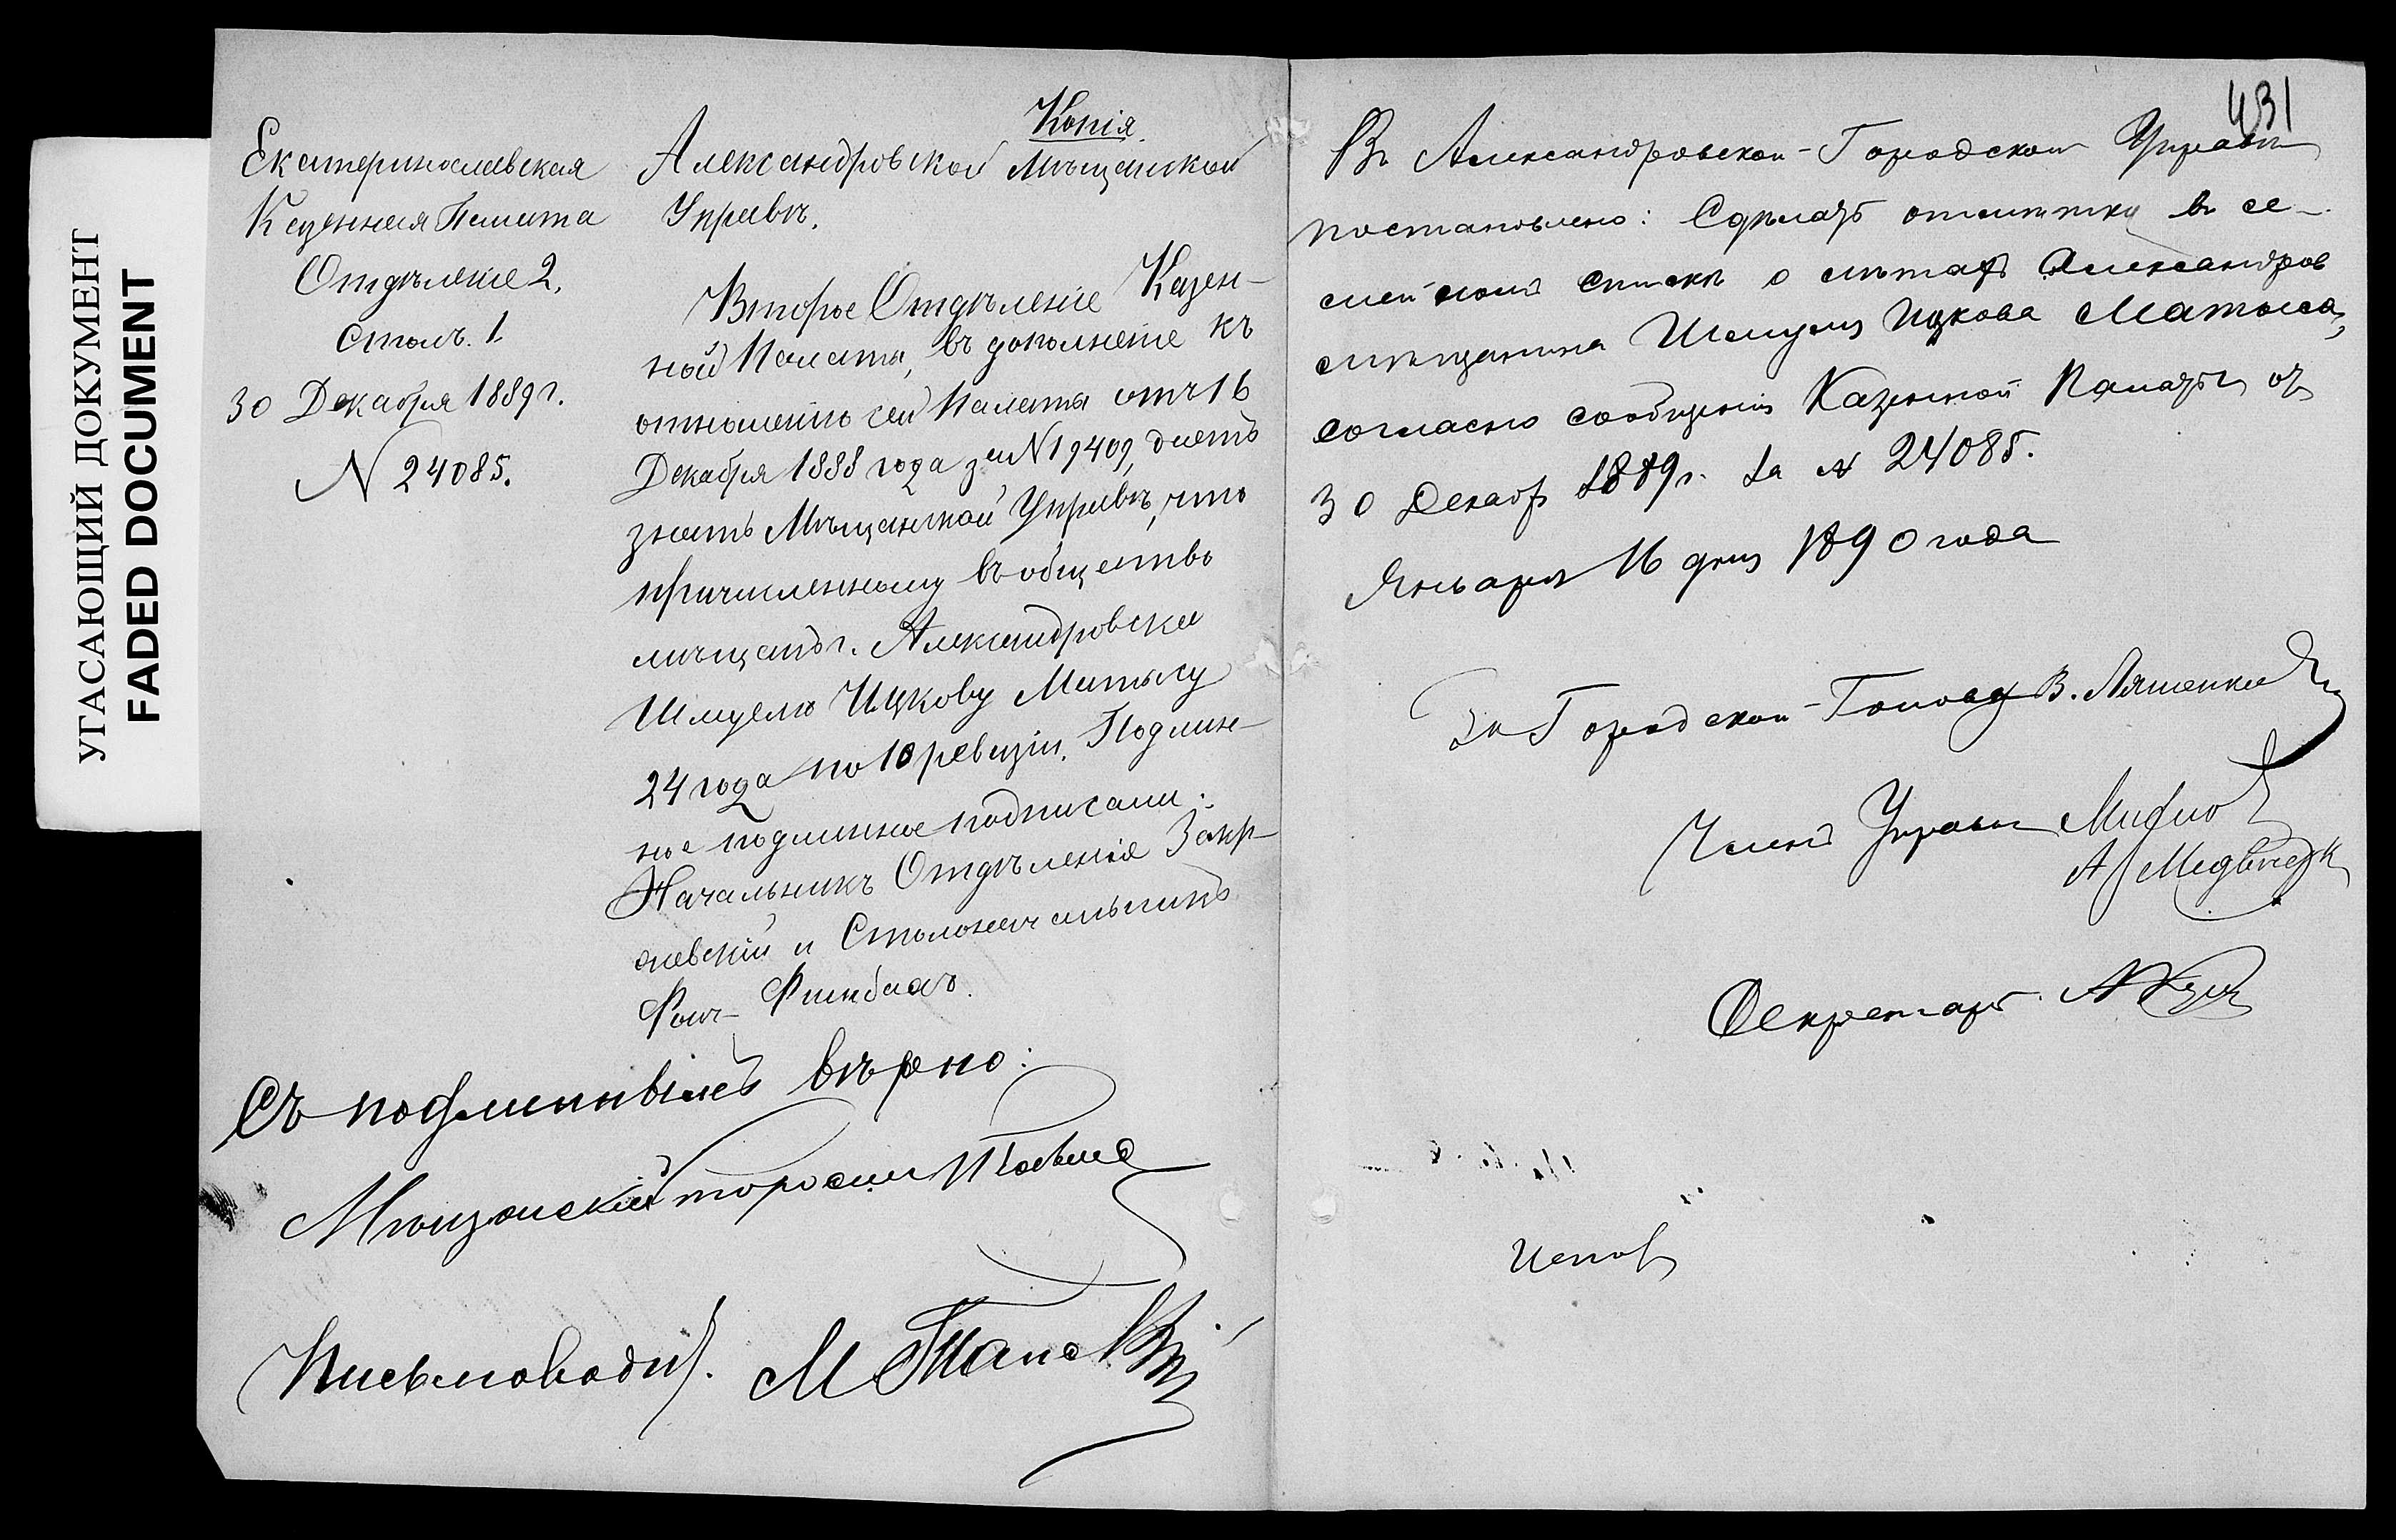 УГАСАЮЩИЙ ДОКУМЕНТ
FADED DOCUMENT
Екатеринославская
Казенная Палата
Отдѣленіе 2.
Столъ. 1.
30 Декабря 1889 г.
N 24085.
Копія.
Александровской Мѣщанской
Управѣ.
Второе Отдѣленіе Казен-
ной Палаты, въ дополненіе къ
отношенію сей Палаты отъ 16
Декабря 1888 года за N 19409, даетъ
знать Мѣщанской Управѣ, что
причисленному въ общество
мѣщанъ г. Александровска
Шмуелю Ицкову Матысу
24 года по 10 ревизіи. Подлин-
ное подлинное подписали:
Начальникъ Отдѣленія Закр-
жевскій и Столоначальникъ
Фонъ-
Съ подлиннымъ вѣрно:
Мѣщанскій
Письмоводит. М
431
Въ Александровской-Городской Управѣ
постановлено: Сдѣлать отмѣтку въ се-
мейномъ спискѣ о лѣтахъ Александров
мѣщанина Шмуеля Ицкова Матыса,
согласно сообщенія Казенной Палаты отъ
30 Декабр 1889 г. за N 24085.
Января 16 дня 1890 года
За Городской-Голова В. Ляшенко
Члены Управы
А Медвѣд
Секретарь